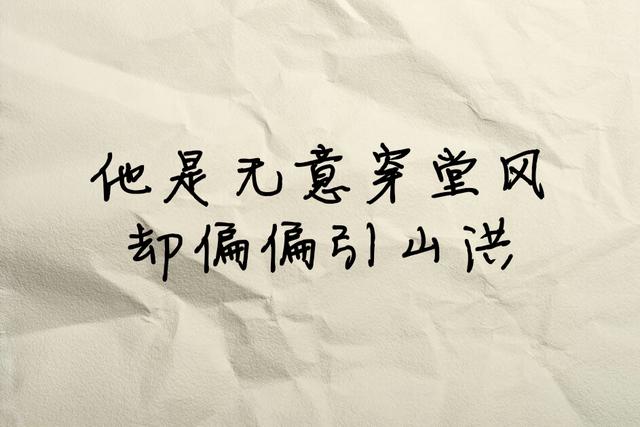 他是无意穿堂风
却偏偏引山洪